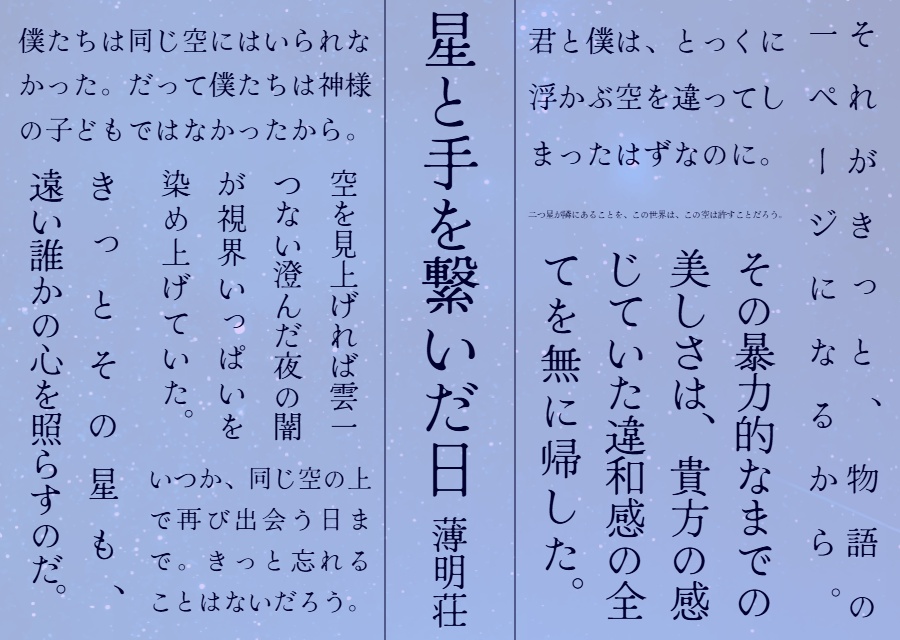 それがきっと、物語の
一ページになるから。
君と僕は、とっくに
浮かぶ空を違ってし
まったはずなのに。
二つ星が隣にあることを、この世界は、この空は許すことだろう。
その暴力的なまでの
美しさは、貴方の感
じていた違和感の全
てを無に帰した。
星と手を繋いだ日 薄明荘
僕たちは同じ空にはいられな
かった。だって僕たちは神様
の子どもではなかったから。
空を見上げれば雲一
つない澄んだ夜の闇
が視界いっぱいを
染め上げていた。
きっとその星も、
遠い誰かの心を照らすのだ。
いつか、同じ空の上
で再び出会う日ま
で。きっと忘れる
ことはないだろう。